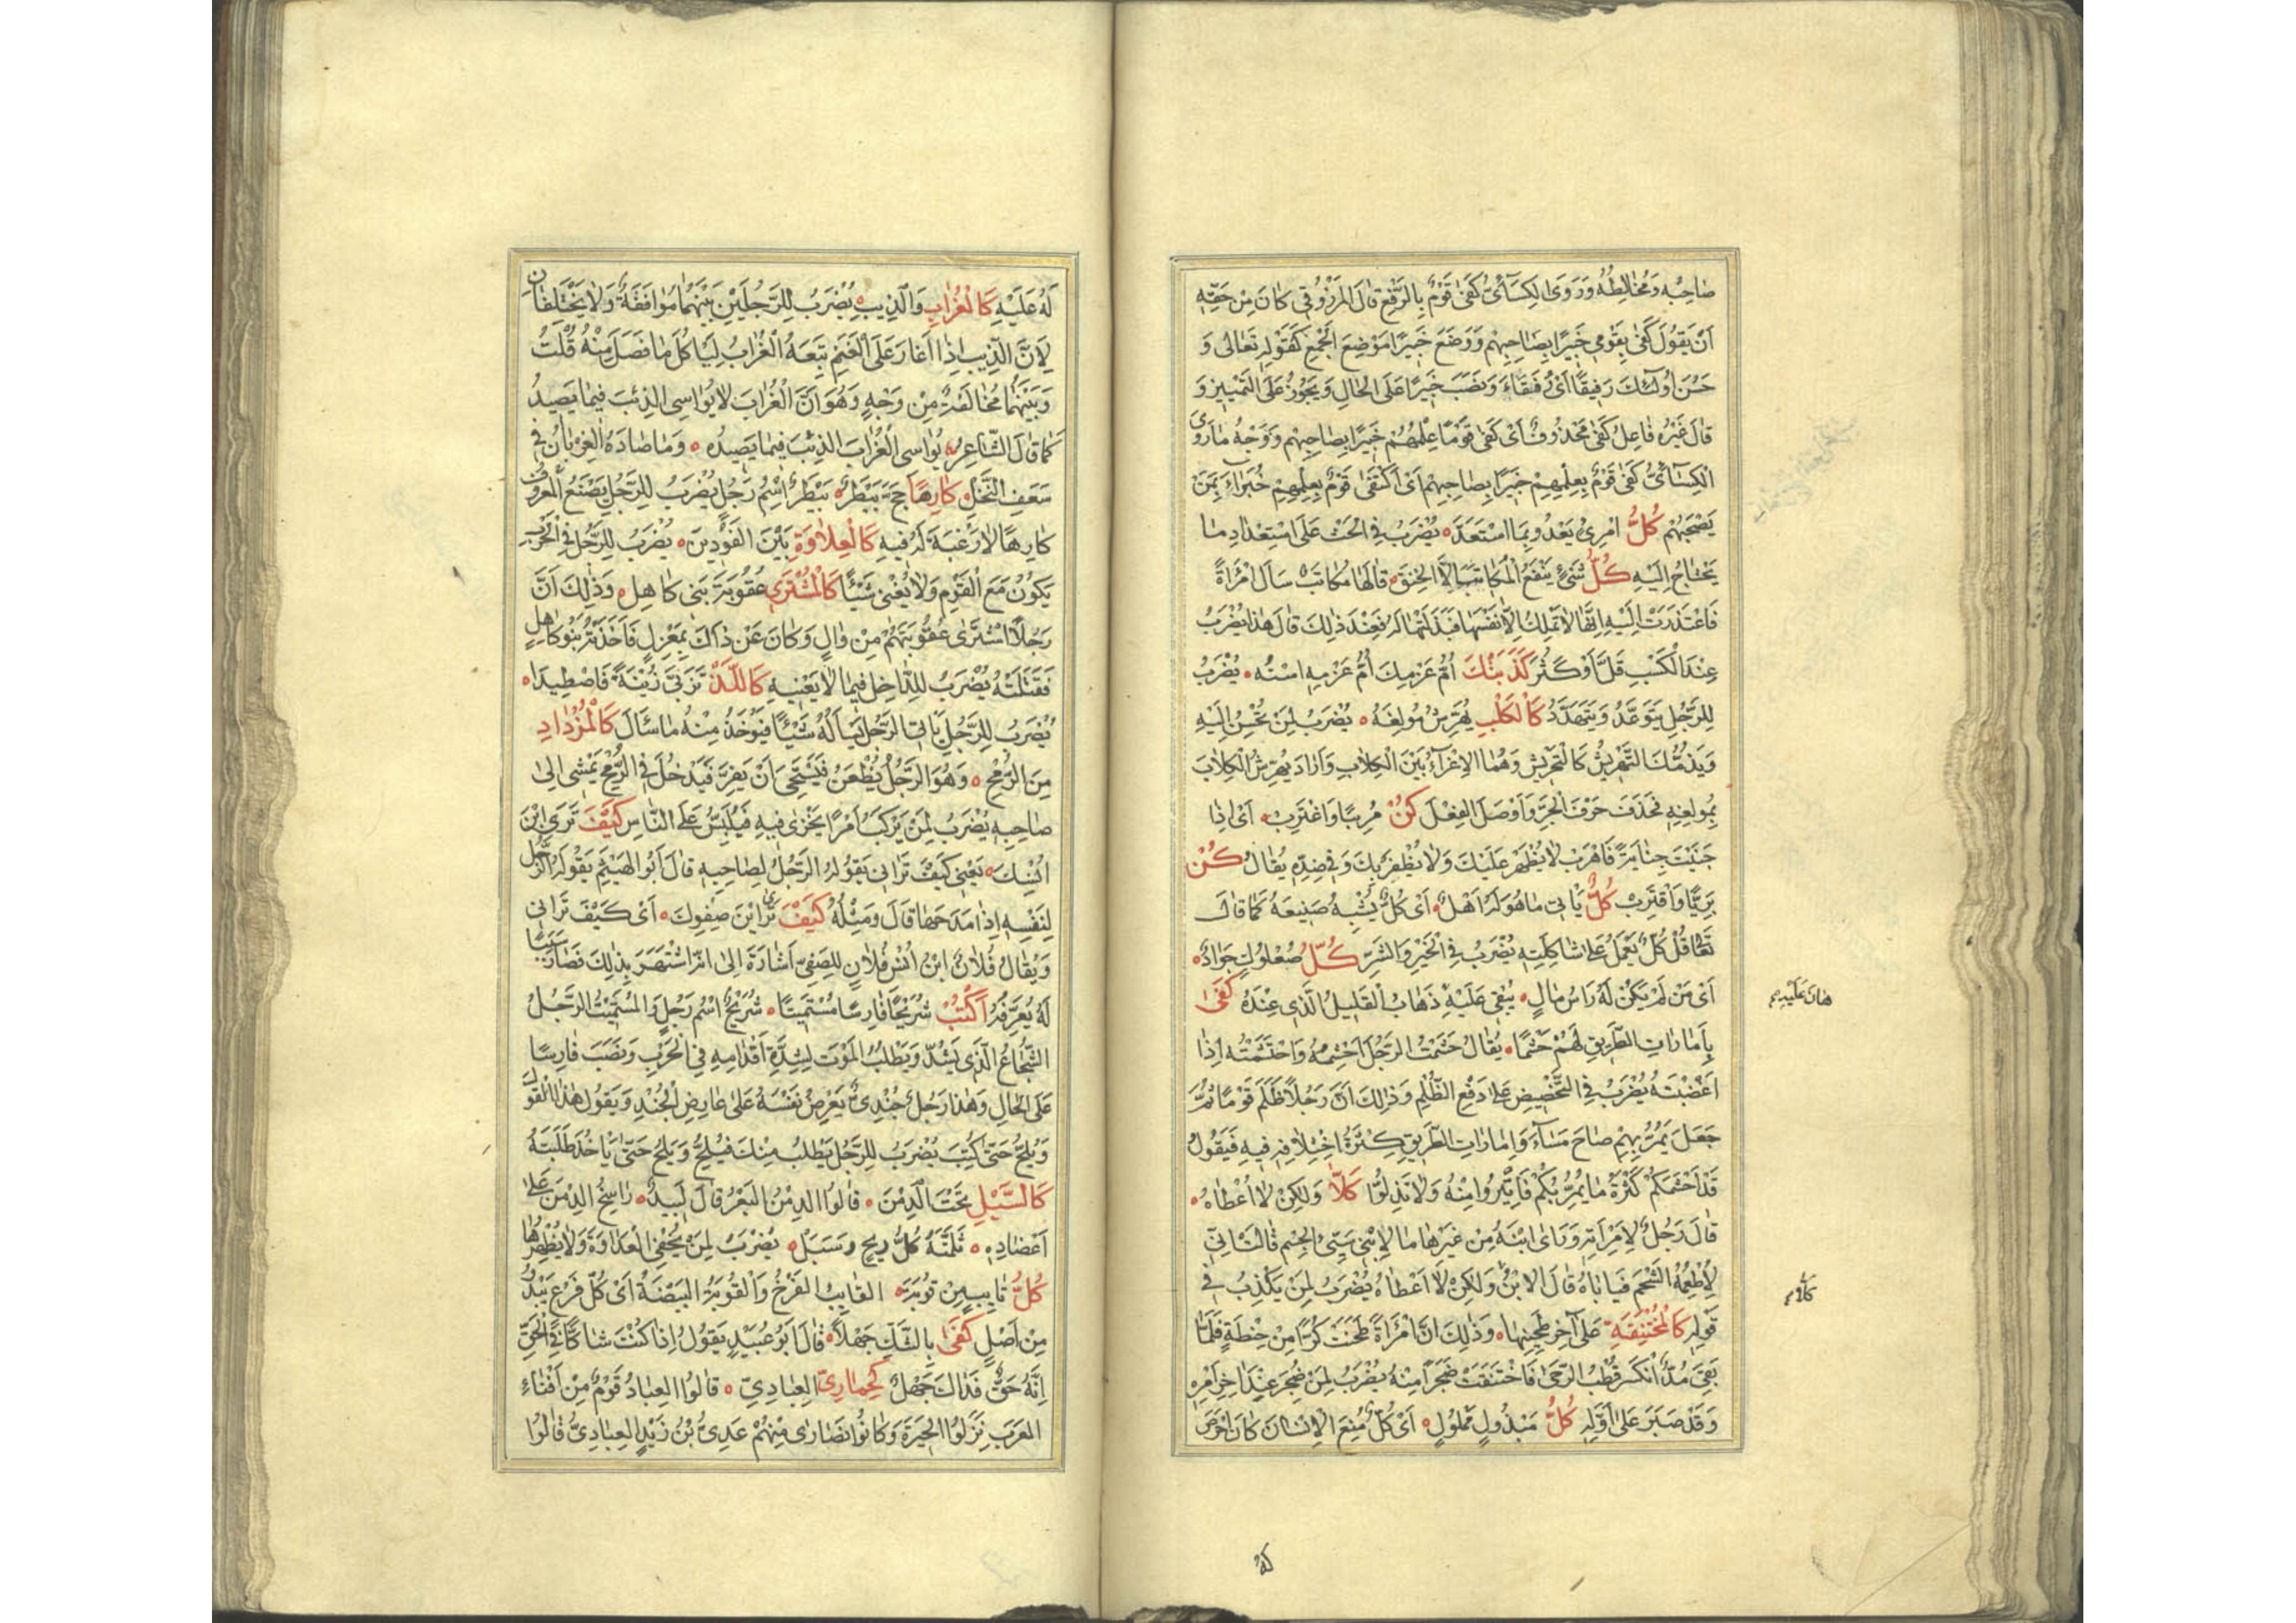 صاحبه ومخالطه وروى الكسائىّ كفى قومٌ بالرّفع قال المرزوقى كان من حقّه
ان يقول كفى بقومى خبيرًا بصاحبهم ووضع خبيرًا موضع الجمع كقوله تعالى و
حسن اولئك رفيقًا اى رفقاء ونصب خبيرًا على الحال ويجوز على التمييز و
قال غيره فاعل كفى محذوفٌ اى كفى قومًا علمهم خبيرًا بصاحبهم ووجه ما روى
الكسائىّ كفى قومٌ بعلمهم خبيرًا بصاحبهم اى اكتفى قومٌ بعلمهم خبراء بمن
يصحبهم كلُّ امرئ يعدو بما استعدّ يضرب فى الحثّ على استعداد ما
يحتاج اليه كلُّ شئ ينفع المكاتب الّا الخنق قالها مكاتب سأل امرأةً
فاعتذرت اليه انّها لا تملك الّا نفسها فبذلتها له فعند ذلك قال هذا يضرب
عند الكسب قلّ او كثر كذبتك امّ عزمك امّ عزمه استه يضرب
للرّجل يتوعّد ويتهدّد كالكلب يهرّش مولغه يضرب لمن تحسن اليه
ويذمّك التهريش كالتحريش وهما الاغراء بين الكلاب واراد يهرش الكلاب
بمولغه فحذف حرف الجرّ واوصل الفعل كن مريبًا واغترب اى اذا
جنيت جناية فاهرب لا يظهر عليك ولا يظفر بك وفى ضدّه يقال كن
بريًّا واقترب كلٌّ يأتى ما هو له اهل اى كلٌّ يشبه صنيعه كما قال
تعا قل كلّ يعمل على شاكلته يضرب فى الخير والشرّ كلّ صعلوك جواد
اى من لم يكن له رأس مال يبقى عليه ذهاب القليل الّذى عنده كفى
هان عليه م
بامارات الطّريق لهم حشمًا يقال حشمت الرّجل احشمه واحتشمته اذا
اغضبته يضرب فى التّحضيض على دفع الظّلم وذلك انّ رجلًا ظلم قومًا ثمّ
جعل يمرّ بهم صباح مساء وامارات الطّريق كثرة اختلافه فيه فيقول
قد احشمكم كثرة ما يمرّ بكم فاثّيروا منه ولا تذلّوا كلّا ولكن لا اعطاه
قال رجل لامرأته ورأى ابنه من غيرها ما لابنى سيّئ الجسم قالت انّى
لاطعمه الشّحم فيأباه قال الابن ولكن لا اعطاه يضرب لمن يكذب فى
كلام
قوله كالمختنقة على آخر طحينها وذلك انّ امرأةً طحنت كرًّا من حنطة فلمّا
بقى مدّ انكسر قطب الرّحى فاختنقت ضجرًا منه يضرب لمن ضجر عند آخر امره
وقد صبر على اوّله كلُّ مبذول مملول اى كلّ منع الانسان كان احرص
له
له عليه كالغراب والذيب يضرب للرّجلين بينهما موافقةٌ ولا يختلفان
لانّ الذيب اذا اغار على الغنم تبعه الغراب ليأكل ما فضل منه قلت
وبينهما مخالفة من وجهٍ وهو انّ الغراب لا يواسى الذئب فيما يصيد
كما قال الشّاعر يواسى الغراب الذئب فيما يصيده وما صاده الغربان فى
سعف النّخل كارهًا حجّ بيطر بيطر اسم رجل يضرب للرّجل يصنع المعروف
كارهًا لا رغبة له فيه كالعلاوة بين الفودين يضرب للرّجل فى الحرب
يكون مع القوم ولا يغنى شيئًا كالمشترى عقوبة بنى كاهل وذلك انّ
رجلًا اشترى عقوبتهم من وال وكان عن ذاك بمعزل فاخذته بنو كاهل
فقتلته يضرب للدّاخل فيما لا يعنيه كاللّذ تزبّى زبيةً فاصطيدا
يضرب للرّجل يأتى الرّجل يسأله شيئًا فيؤخذ منه ما سأل كالمزداد
من الرّمح وهو الرّجل يطعن فيستحى ان يفرّ فيدخل فى الرّمح يمشى الى
صاحبه يضرب لمن يركب امرًا يخزى فيه فيلبس على النّاس كيف ترى ابن
انسك يعنى كيف ترانى يقوله الرّجل لصاحبه قال ابو الهيثم يقوله الرّجل
لنفسه اذا مدحها قال ومثله كيف ترى ابن صفوك اى كيف ترانى
ويقال فلان ابن انس فلان للصفىّ اشارة الى انّه اشتهر بذلك فصار سببًا
له يعرّف به اكتب شريحًا فارسًا مستميتًا شريح اسم رجل والمستميت الرّجل
الشّجاع الّذى يشدّ ويطلب الموت لشدّة اقدامه فى الحرب ونصب فارسًا
على الحال وهذا رجل جندىّ يعرض نفسه على عارض الجند ويقول هذا القول
ويلحّ حتّى كتب يضرب للرّجل يطلب منك فيلحّ ويلحّ حتّى يأخذ طلبته
كالسّيل تحت الدّمن قالوا الدمن البعر قال لبيد راسخ الدّمن على
اعضاده ثلمته كلّ ريح وسبل يضرب لمن يخفى العداوة ولا يظهرها
كلُّ قايبٍ من قوبة القايب الفرخ والقوبة البيضة اى كلّ فرع يبدُ
من اصل كفى بالشّكّ جهلًا قال ابو عبيد يقول اذا كنت شاكًّا فى الحقّ
انّه حقّ فذاك جهلٌ كحمارىّ العبادىّ قالوا العباد قوم من افناء
العرب نزلوا الحيرة وكانوا نصارى منهم عدىّ بن زيد العبادىّ قالوا